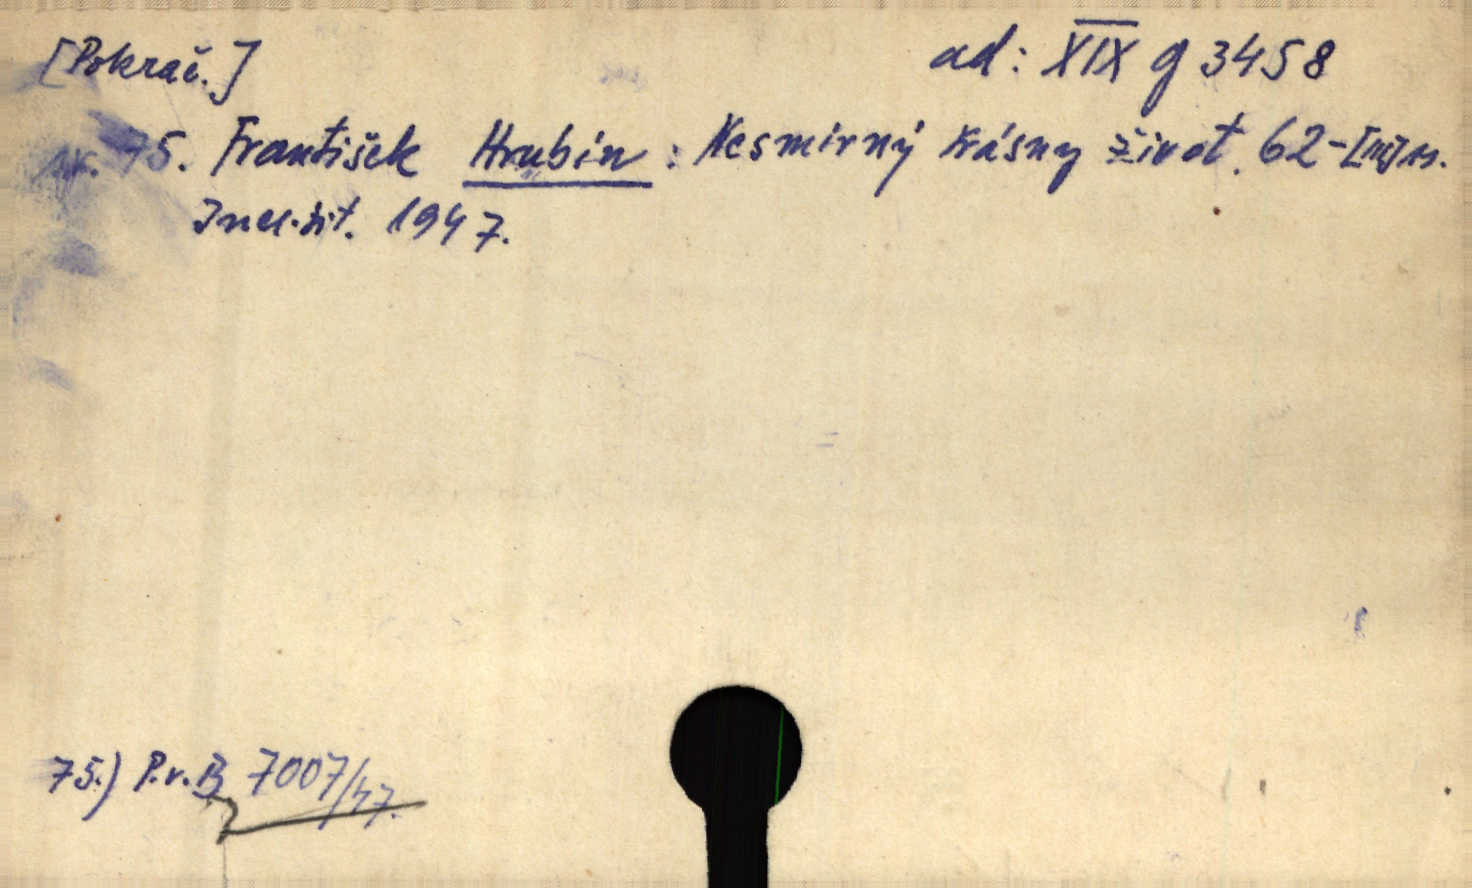 [Pokrač.] ad: XIX g 3458
Nr. 75. František Hrubín: Nesmírný krásny život. 62-[III] s.
1947.
75.) P.r.B 7007/47.